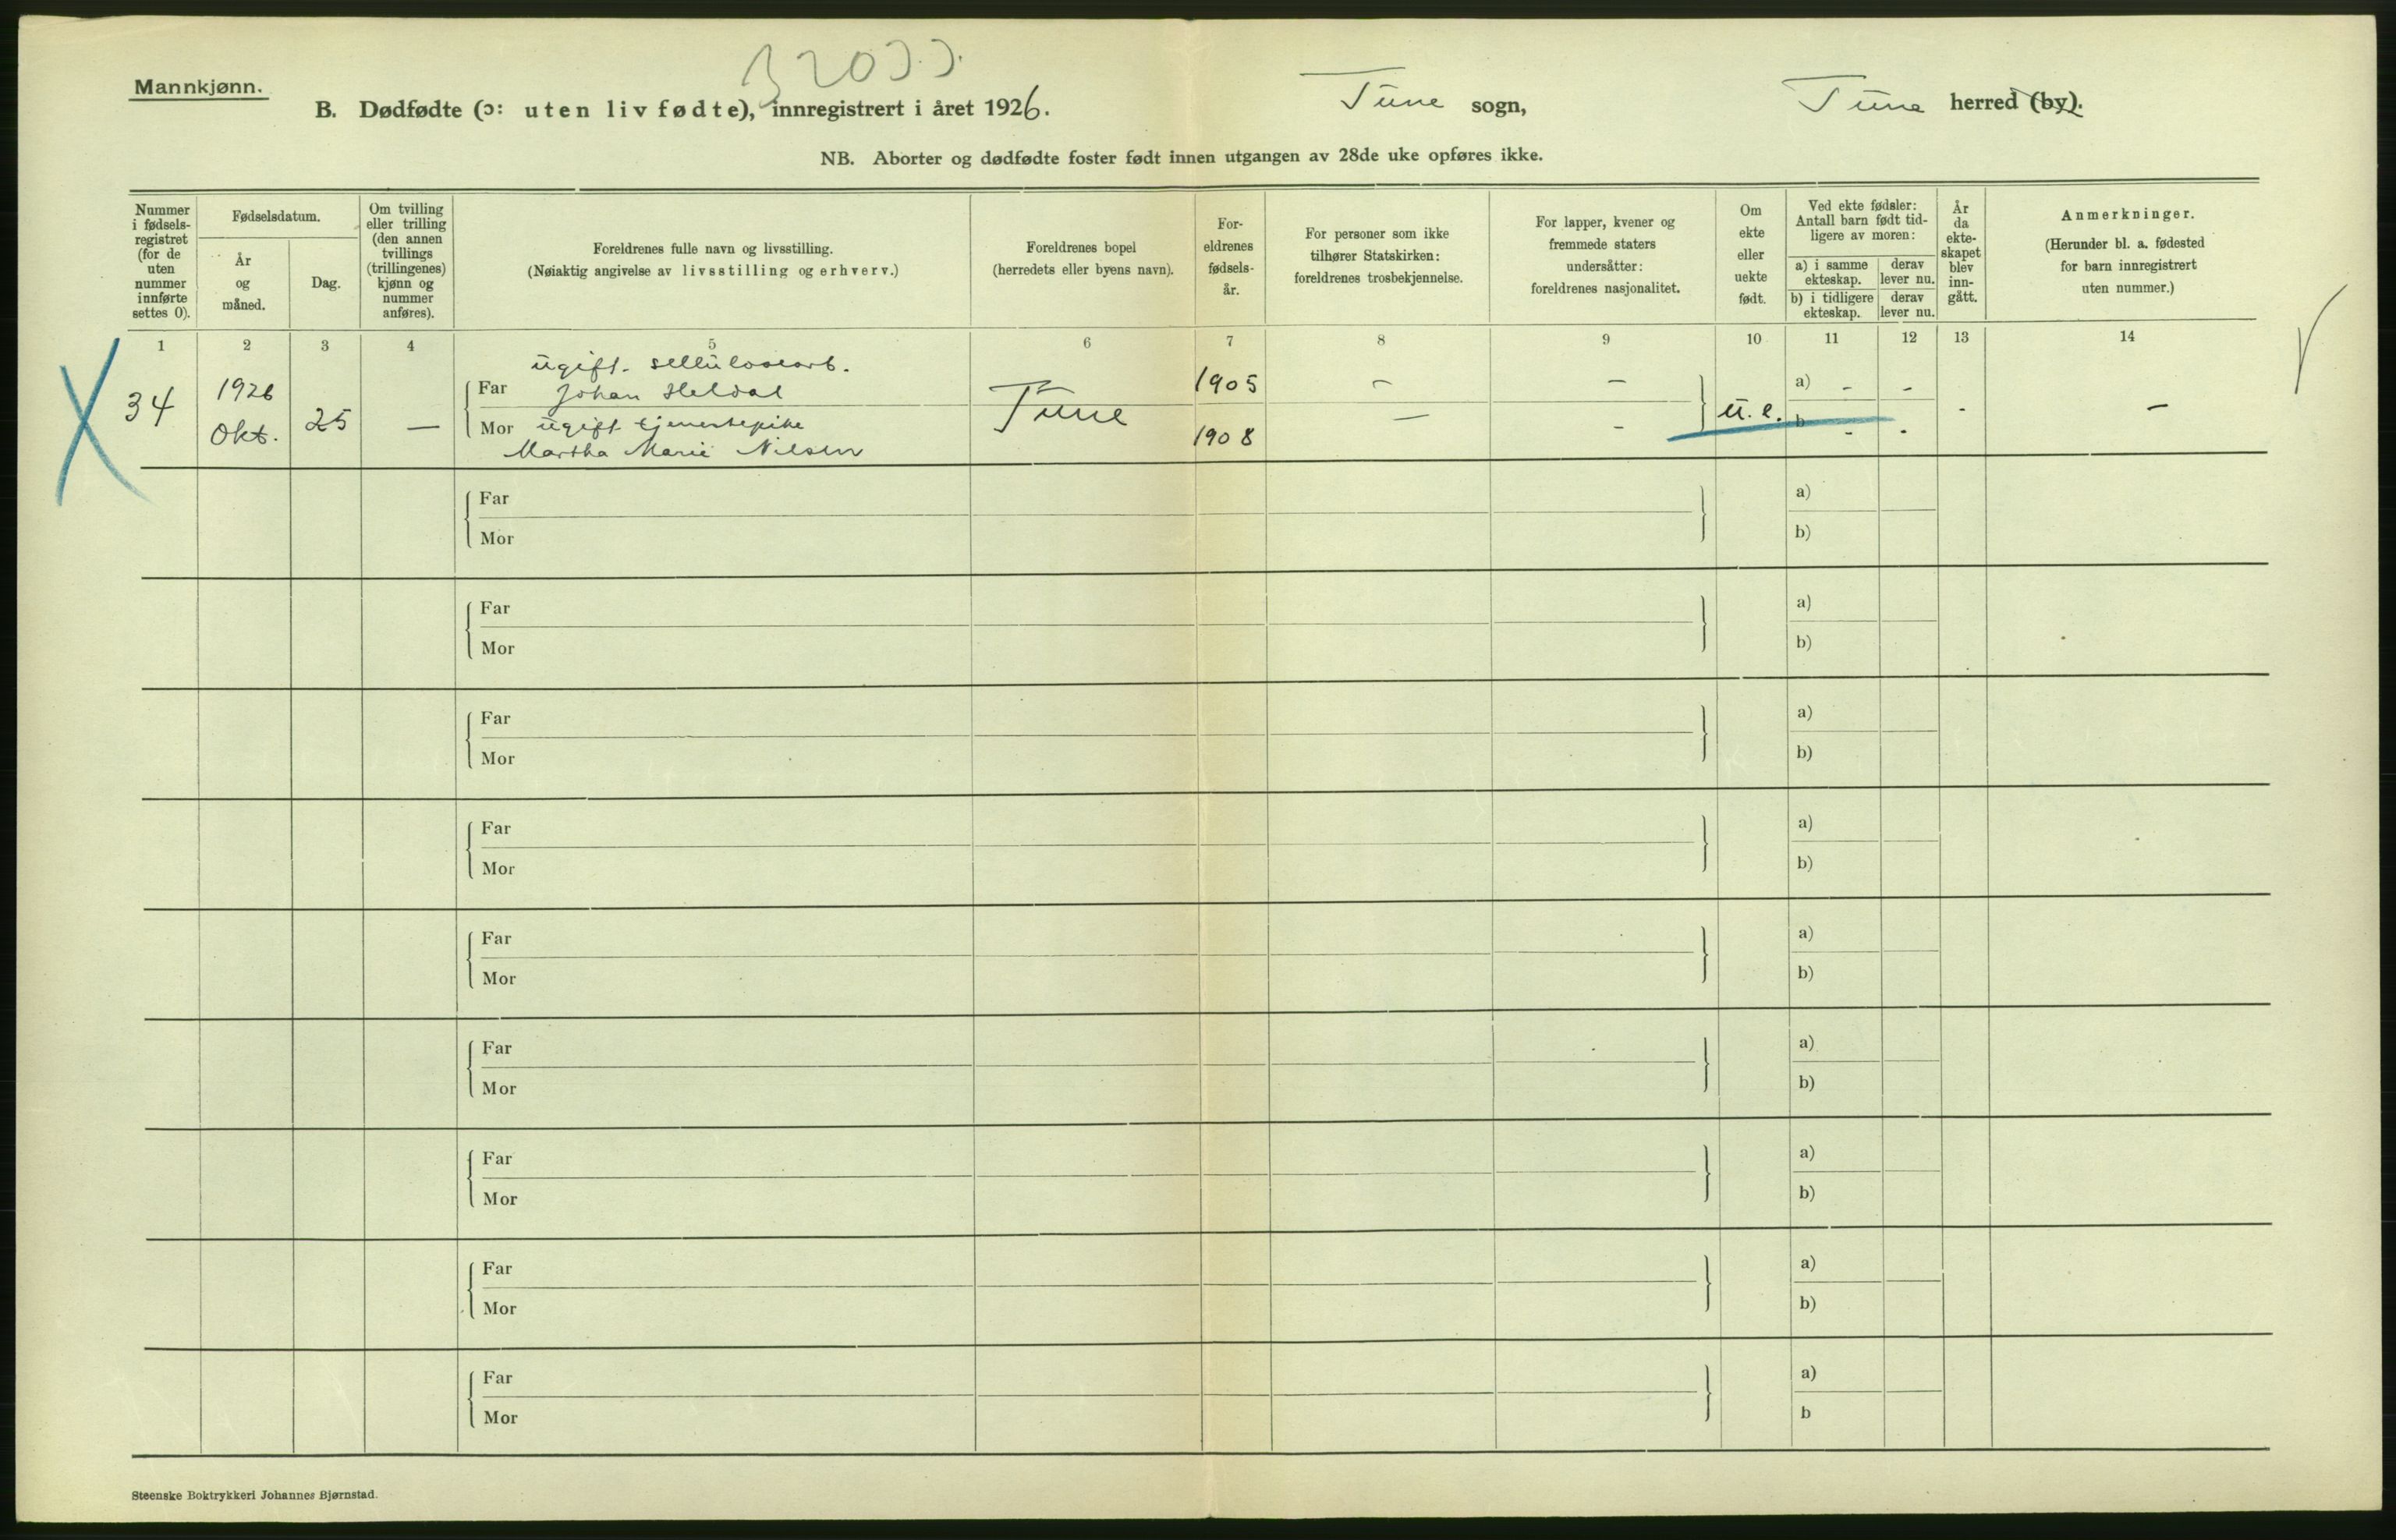 Mannkjønn.
B. Dødfødte (ɔ: uten liv fødte), innregistrert i året 1926.
Tune sogn,
Tune herred (by).
NB. Aborter og dødfødte foster født innen utgangen av 28de uke opføres ikke.
Nummer
i fødsels-
registret
(for de
uten
nummer
innførte
settes 0).
Fødselsdatum.
År
og
måned.
Dag.
Om tvilling
eller trilling
(den annen
tvillings
(trillingenes)
kjønn og
nummer
anføres).
Foreldrenes fulle navn og livsstilling.
(Nøiaktig angivelse av livsstilling og erhverv.)
Foreldrenes bopel
(herredets eller byens navn).
For-
eldrenes
fødsels-
år.
For personer som ikke
tilhører Statskirken:
foreldrenes trosbekjennelse.
For lapper, kvener og
fremmede staters
undersåtter:
foreldrenes nasjonalitet.
Om
ekte
eller
uekte
født.
Ved ekte fødsler:
Antall barn født tid-
ligere av moren:
a) i samme
ekteskap.
derav
lever nu.
b) i tidligere
ekteskap.
derav
lever nu.
År
da
ekte-
skapet
blev
inn-
gått.
Anmerkninger.
(Herunder bl. a. fødested
for barn innregistrert
uten nummer.)
1 2 3 4 5 6 7 8 9 10 11 12 13 14
ugift. sellulosearb.
Far Johan Heldal 1905 – – a) - -
34 1926 Okt. 25 — Tune u. e. - –
Mor ugift tjenestepike 1908 — - b - -
Martha Marie Nilsen
Far a)
Mor b)
Far a)
Mor b)
Far a)
Mor b)
Far a)
Mor b)
Far a)
Mor b)
Far a)
Mor b)
Far a)
Mor b)
Far a)
Mor b)
Far a)
Mor b
Steenske Boktrykkeri Johannes Bjørnstad.